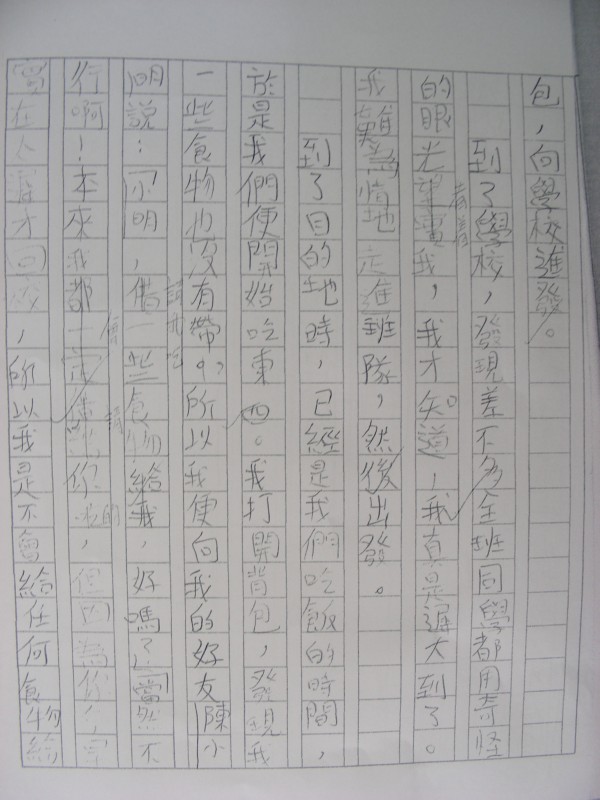 包，向學校進發。
到了學校，發現差不多全班同學都用奇怪
的眼光望著我，我才知道，我真是遲大到了。
我難為情地走進班隊，然後出發。
到了目的地時，已經是我們吃飯的時間，
於是我們便開始吃東西。我打開背包，發現我
一些食物也沒有帶。所以我便向我的好友陳小
明說：「小明，借一些食物給我，好嗎？」「當然不
行啊！本來我都一定會 你的，但因為你
在 才回 ，所以我是不會給任何食物給